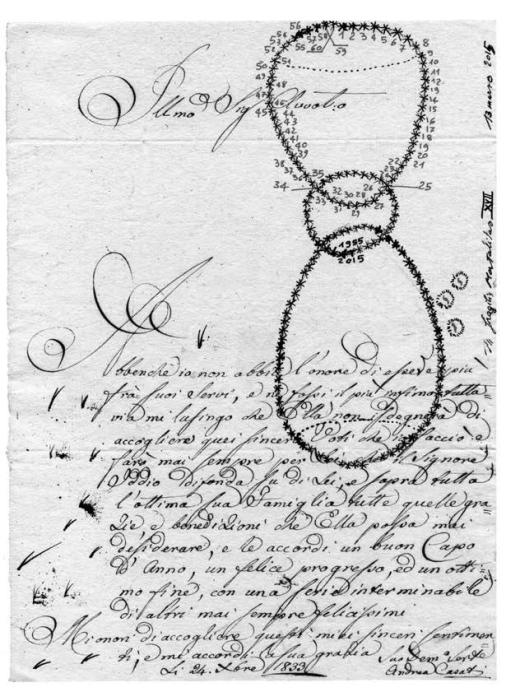 56 58 1 2 3 4 5 6 7
55 57 60 59 8
52 9
50 51 10
49 11
48 12
47 13
46 14
45 15
44 16
43 17
42 18
41 19
40 20
39 21
38 22
37 23
36
35
34 32 30 28 26 25
33 31 29 27
1955
2015
13 marzo 2015
XVII
Illmo Sig Avvoto
Abbenche io non abbia l'onore di essere più
frà suoi Servi, e ne fossi il più infimo tutta=
via mi lusingo che Ella non sdegnerà di
accogliere quei sinceri Voti che io faccio e
farò mai sempre per Lei, che il Signore
Iddio difonda su di Lei, e sopra tutta
l'ottima sua Famiglia tutte quelle gra=
zie e benedizioni che Ella possa mai
desiderare, e le accordi un buon Capo
d'Anno, un felice progresso, ed un otti=
mo fine, con una serie interminabile
di altri mai sempre felicissimi
Mi onori di accogliere questi miei sinceri sentimen
ti, e mi accordi la sua grazia
Li 24. Xbre 1833
Suo Devmo Servo
Andrea Casati